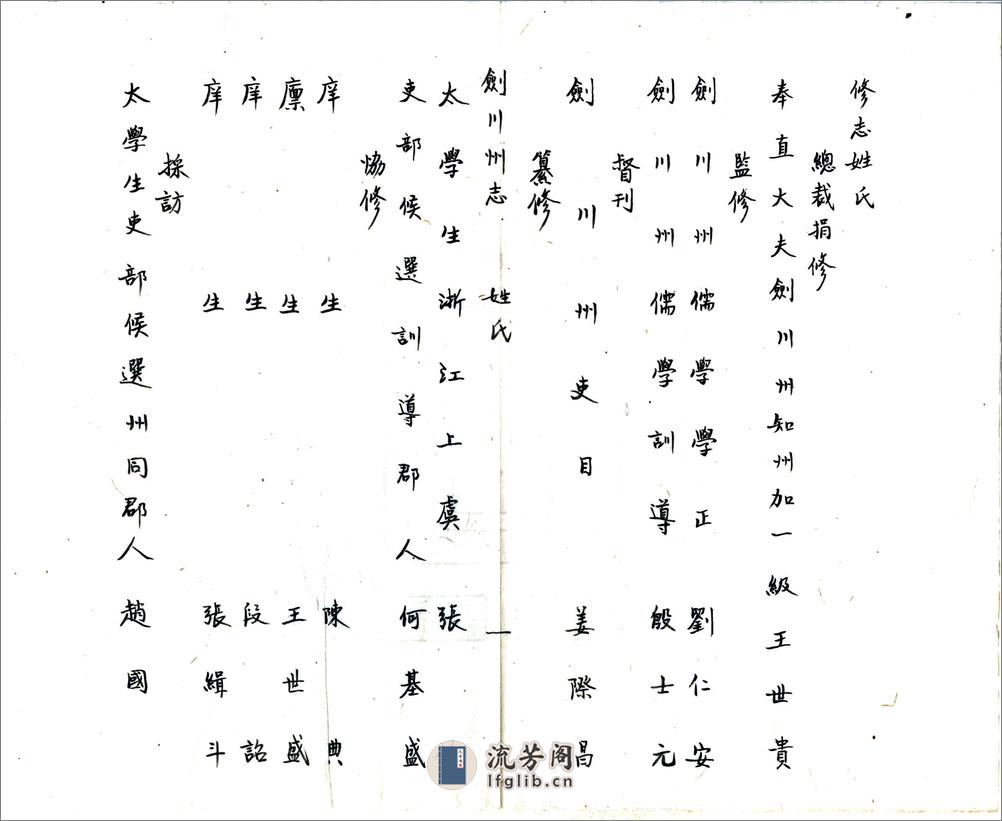 修志姓氏
總裁捐修
奉直大夫劍川州知州加一級王世貴
監修
劍川州儒學學正 劉仁安
劍川州儒學訓導 殷士元
督刊
劍川州吏目 姜際昌
纂修
劍川州志 姓氏 一
太學生浙江上虞 張
吏部候選訓導郡人 何基盛
協修
庠生 陳典
廩生 王世盛
庠生 段詔
庠生 張緝斗
採訪
太學生吏部候選州同郡人 趙國
流芳阁
lfglib.cn